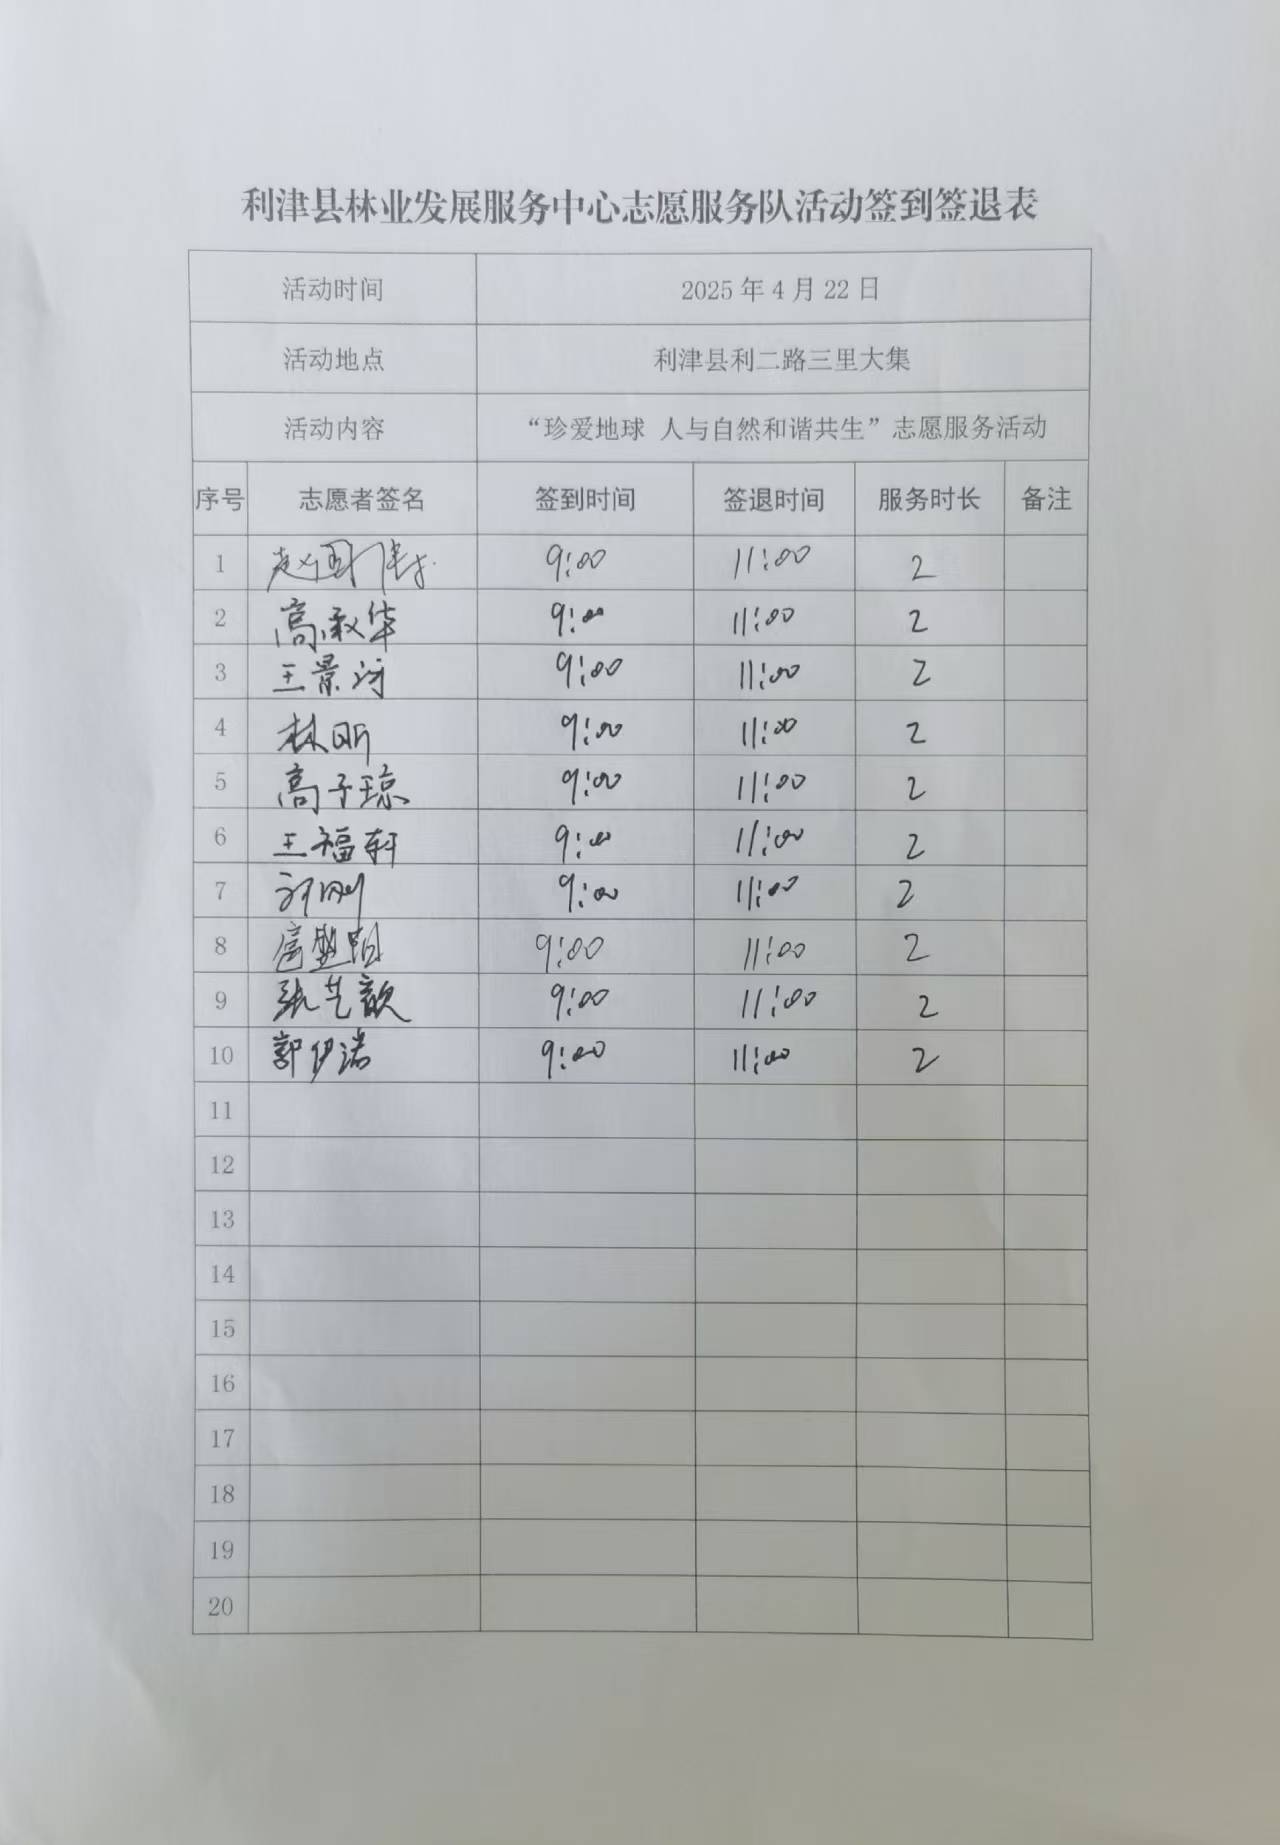 利津县林业发展服务中心志愿服务队活动签到签退表
活动时间 2025年4月22日
活动地点 利津县利二路三里大集
活动内容 “珍爱地球 人与自然和谐共生”志愿服务活动
序号 志愿者签名 签到时间 签退时间 服务时长 备注
1 赵国伟 9:00 11:00 2
2 高承华 9:00 11:00 2
3 王景 9:00 11:00 2
4 林昕 9:00 11:00 2
5 高子琼 9:00 11:00 2
6 王福轩 9:00 11:00 2
7 9:00 11:00 2
8 9:00 11:00 2
9 张艺歆 9:00 11:00 2
10 郭伊瑞 9:00 11:00 2
11
12
13
14
15
16
17
18
19
20